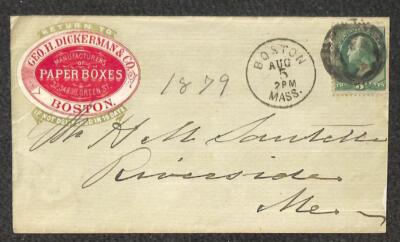 RETURN TO
GEO. H. DICKERMAN & CO.
MANUFACTURERS
OF
PAPER BOXES
GREEN ST.
BOSTON.
IF NOT DELIVERED IN 10 DAYS
1879
BOSTON
AUG
5
2PM
MASS.
H M
Riverside
Me